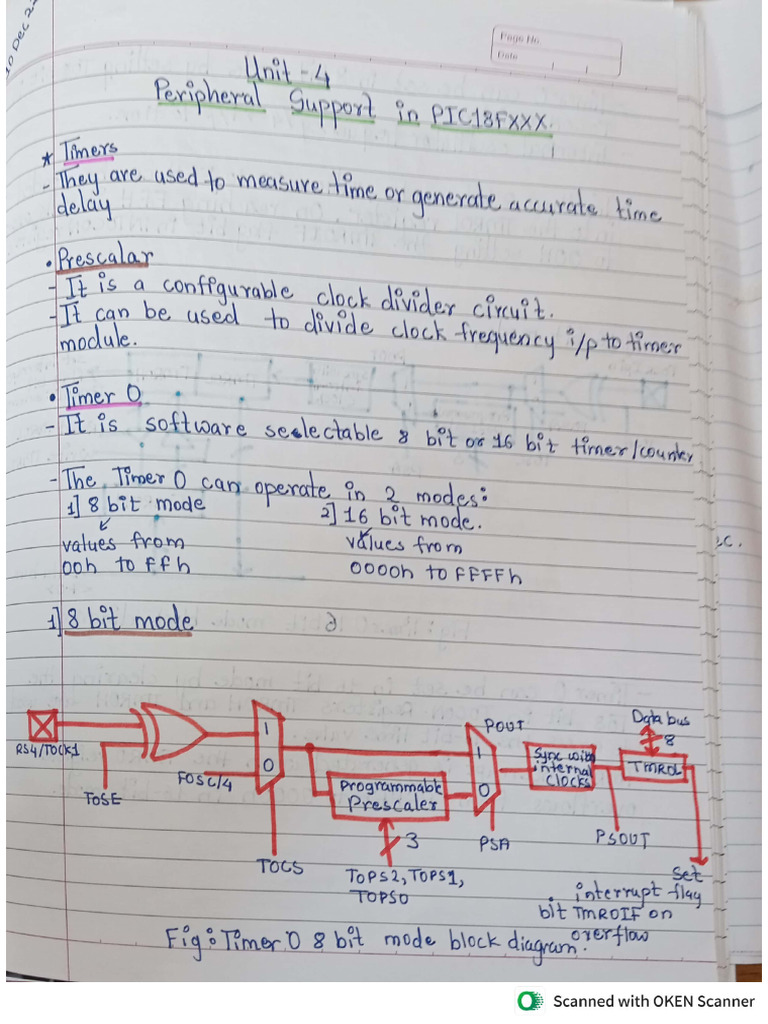 10 Dec 2
Page No.
Date
Unit - 4
Peripheral Support in PIC18FXXX.
* Timers
- They are used to measure time or generate accurate time
delay
• Prescalar
- It is a configurable clock divider circuit.
- It can be used to divide clock frequency i/p to timer
module.
• Timer 0
- It is software selectable 8 bit or 16 bit timer/counter
- The Timer 0 can operate in 2 modes:
1] 8 bit mode 2] 16 bit mode.
values from values from
00h to ffh 0000h to FFFFh
1] 8 bit mode
RS4/TOCK1
TOSE
FOSC/4
1
0
TOCS
Programmable
Prescaler
3
TOPS2, TOPS1,
TOPS0
POUT
1
0
PSA
Sync with
internal
clocks
PSOUT
Data bus
8
TMROL
Set
interrupt flag
bit TMROIF on
overflow
Fig: Timer 0 8 bit mode block diagram.
Scanned with OKEN Scanner